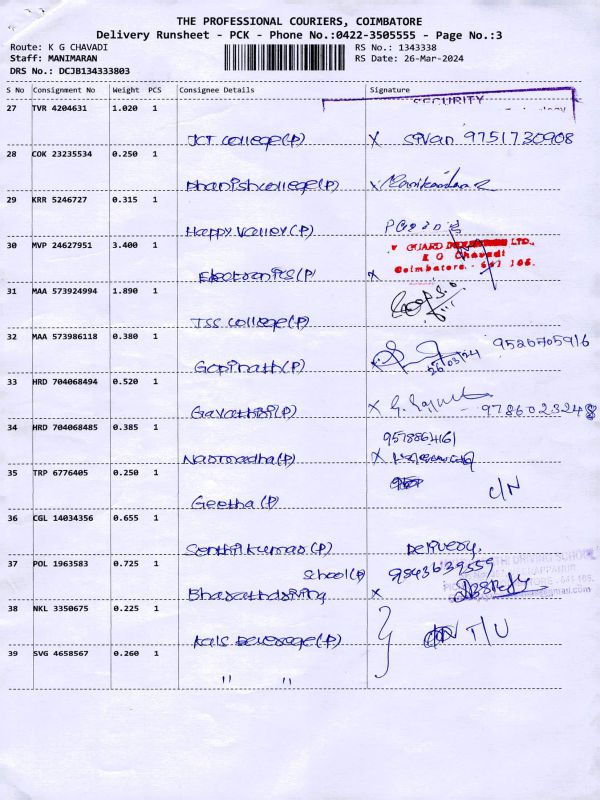 THE PROFESSIONAL COURIERS, COIMBATORE
Delivery Runsheet - PCK - Phone No.:0422-3505555 - Page No.:3
Route: K G CHAVADI
RS No.: 1343338
Staff: MANIMARAN
RS Date: 26-Mar-2024
DRS No.: DCJB134333803
S No Consignment No Weight PCS Consignee Details Signature
SECURITY
27 TVR 4204631 1.020 1
JCT college(P) X Sivan 9751730908
28 COK 23235534 0.250 1
Dhanish college(P) X Manikandan
29 KRR 5246727 0.315 1
Happy Valley(P)
30 MVP 24627951 3.400 1
GUARD LTD.,
K G Chavadi
Coimbatore - 641 105.
Electronics(P) X
31 MAA 573924994 1.890 1
JSS college(P)
32 MAA 573986118 0.380 1
9526705916
Gopinath(P) 26/03/24
33 HRD 704068494 0.520 1
Gayathiri(P) X 9786023248
34 HRD 704068485 0.385 1
9578864161
Narmadha(P) X
35 TRP 6776405 0.250 1
C/N
Geetha(P)
36 CGL 14034356 0.655 1
Senthil kumar(P) Delivery.
37 POL 1963583 0.725 1
School(P) 9843639559
Bharath driving X
38 NKL 3350675 0.225 1
T/U
Kals Beverage(P)
39 SVG 4658567 0.260 1
" "